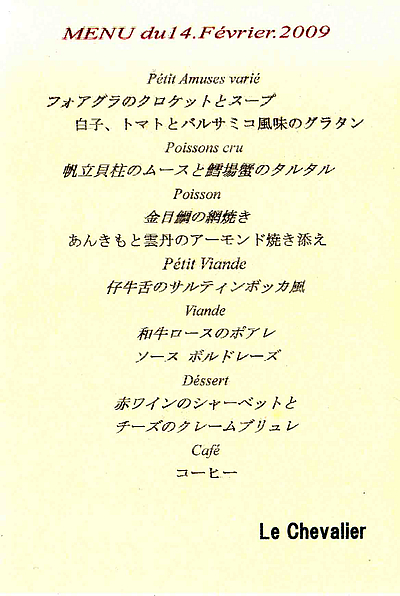 MENU du14.Février.2009
Pétit Amuses varié
フォアグラのクロケットとスープ
白子、トマトとバルサミコ風味のグラタン
Poissons cru
帆立貝柱のムースと鱈場蟹のタルタル
Poisson
金目鯛の網焼き
あんきもと雲丹のアーモンド焼き添え
Pétit Viande
仔牛舌のサルティンボッカ風
Viande
和牛ロースのポアレ
ソース ボルドレーズ
Déssert
赤ワインのシャーベットと
チーズのクレームブリュレ
Café
コーヒー
Le Chevalier